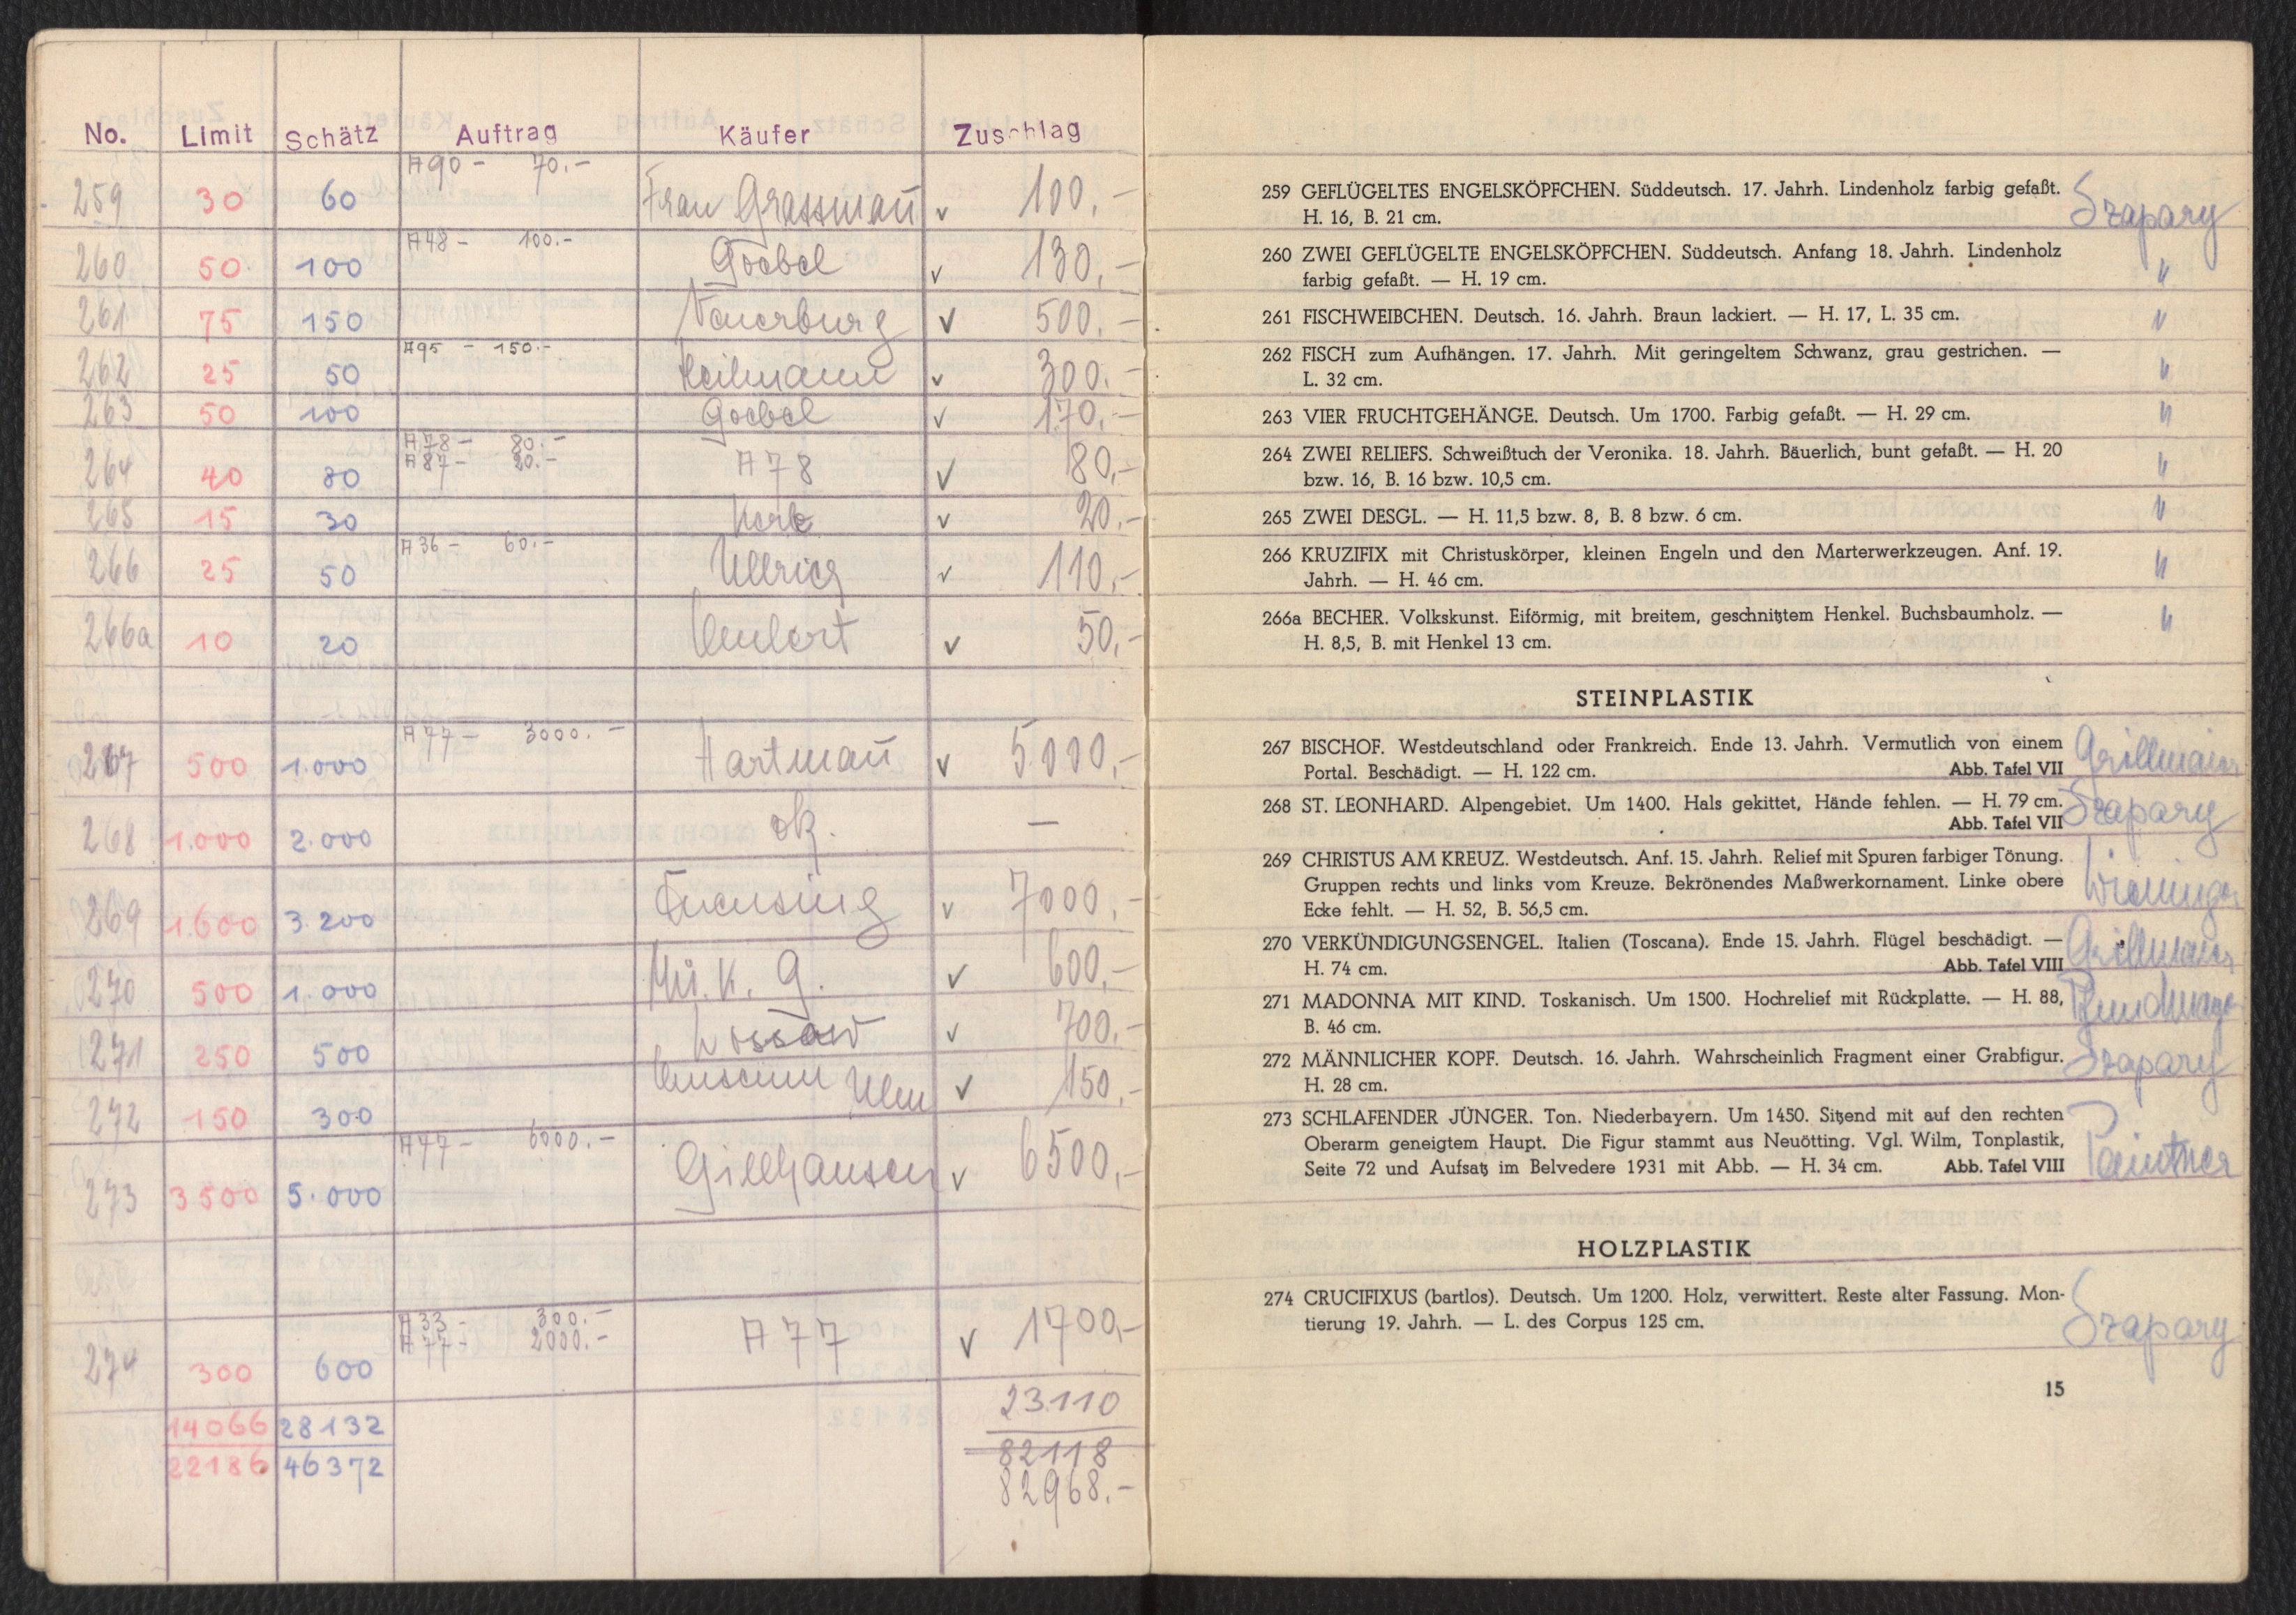 No. Limit Schätz Auftrag Käufer Zuschlag
A90 - 70.-
259 30 60 Frau Grassmañ v 100,-
A48 - 100.-
260 50 100 Goebel v 130,-
261 75 150 v 500,-
A95 - 150.-
262 25 50 Heilmann v 300.-
263 50 100 Goebel v 170,-
A78 - 80.-
A87 - 20.-
264 40 80 A78 v 80,-
265 15 30 v 20,-
A36 - 60.-
266 25 50 Ullrich v 110,-
266a 10 20 v 50,-
A77 - 3000.-
267 500 1.000 Hartmañ v 5.000,-
268 1.000 2.000 —
269 1.600 3.200 v 7000,-
270 500 1.000 v 600,-
271 250 500 Lossow v 700,-
272 150 300 Museum Ulm v 150,-
A77 - 6000.-
273 3500 5.000 Gillhausen v 6500,-
A33 - 300.-
A77 - 2000.-
274 300 600 A77 v 1700,-
23.110
14066 28132
82118
22186 46372
82968.-
259 GEFLÜGELTES ENGELSKÖPFCHEN. Süddeutsch. 17. Jahrh. Lindenholz farbig gefaßt. Szapary
H. 16, B. 21 cm.
260 ZWEI GEFLÜGELTE ENGELSKÖPFCHEN. Süddeutsch. Anfang 18. Jahrh. Lindenholz
farbig gefaßt. — H. 19 cm. "
261 FISCHWEIBCHEN. Deutsch. 16. Jahrh. Braun lackiert. — H. 17, L. 35 cm. "
262 FISCH zum Aufhängen. 17. Jahrh. Mit geringeltem Schwanz, grau gestrichen. — "
L. 32 cm.
263 VIER FRUCHTGEHÄNGE. Deutsch. Um 1700. Farbig gefaßt. — H. 29 cm. "
264 ZWEI RELIEFS. Schweißtuch der Veronika. 18. Jahrh. Bäuerlich, bunt gefaßt. — H. 20 "
bzw. 16, B. 16 bzw. 10,5 cm.
265 ZWEI DESGL. — H. 11,5 bzw. 8, B. 8 bzw. 6 cm. "
266 KRUZIFIX mit Christuskörper, kleinen Engeln und den Marterwerkzeugen. Anf. 19. "
Jahrh. — H. 46 cm.
266a BECHER. Volkskunst. Eiförmig, mit breitem, geschnitztem Henkel. Buchsbaumholz. — "
H. 8,5, B. mit Henkel 13 cm.
STEINPLASTIK
267 BISCHOF. Westdeutschland oder Frankreich. Ende 13. Jahrh. Vermutlich von einem Grillmaier
Portal. Beschädigt. — H. 122 cm. Abb. Tafel VII
268 ST. LEONHARD. Alpengebiet. Um 1400. Hals gekittet, Hände fehlen. — H. 79 cm. Szapary
Abb. Tafel VII
269 CHRISTUS AM KREUZ. Westdeutsch. Anf. 15. Jahrh. Relief mit Spuren farbiger Tönung.
Gruppen rechts und links vom Kreuze. Bekrönendes Maßwerkornament. Linke obere
Ecke fehlt. — H. 52, B. 56,5 cm.
270 VERKÜNDIGUNGSENGEL. Italien (Toscana). Ende 15. Jahrh. Flügel beschädigt. — Grillmaier
H. 74 cm. Abb. Tafel VIII
271 MADONNA MIT KIND. Toskanisch. Um 1500. Hochrelief mit Rückplatte. — H. 88,
B. 46 cm.
272 MÄNNLICHER KOPF. Deutsch. 16. Jahrh. Wahrscheinlich Fragment einer Grabfigur. Szapary
H. 28 cm.
273 SCHLAFENDER JÜNGER. Ton. Niederbayern. Um 1450. Sitzend mit auf den rechten
Oberarm geneigtem Haupt. Die Figur stammt aus Neuötting. Vgl. Wilm, Tonplastik, Paintner
Seite 72 und Aufsatz im Belvedere 1931 mit Abb. — H. 34 cm. Abb. Tafel VIII
HOLZPLASTIK
274 CRUCIFIXUS (bartlos). Deutsch. Um 1200. Holz, verwittert. Reste alter Fassung. Mon-
tierung 19. Jahrh. — L. des Corpus 125 cm. Szapary
15